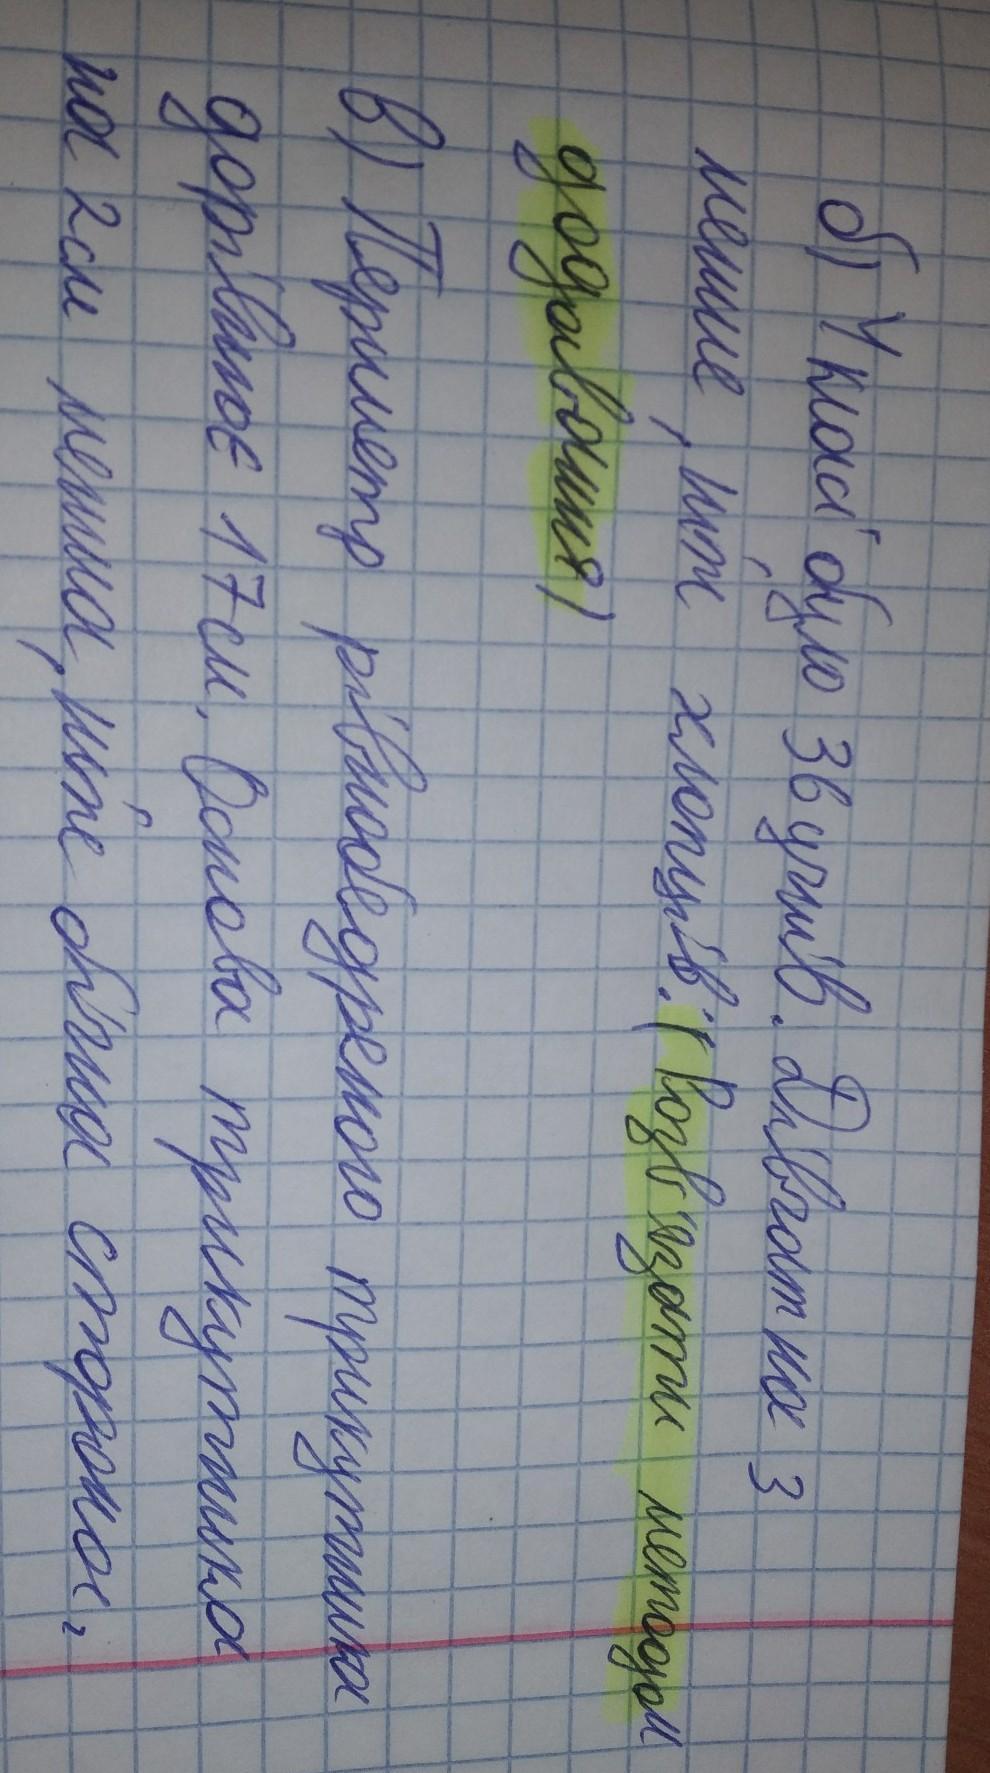 б) У класі було 3в учнів. Дівчат на 3
менше, ніж хлопців. (Розв'язати методом
додавання)
в) Периметр рівнобедреного трикутника
дорівнює 17см. Основа трикутника
на 2см менша, ніж бічна сторона.